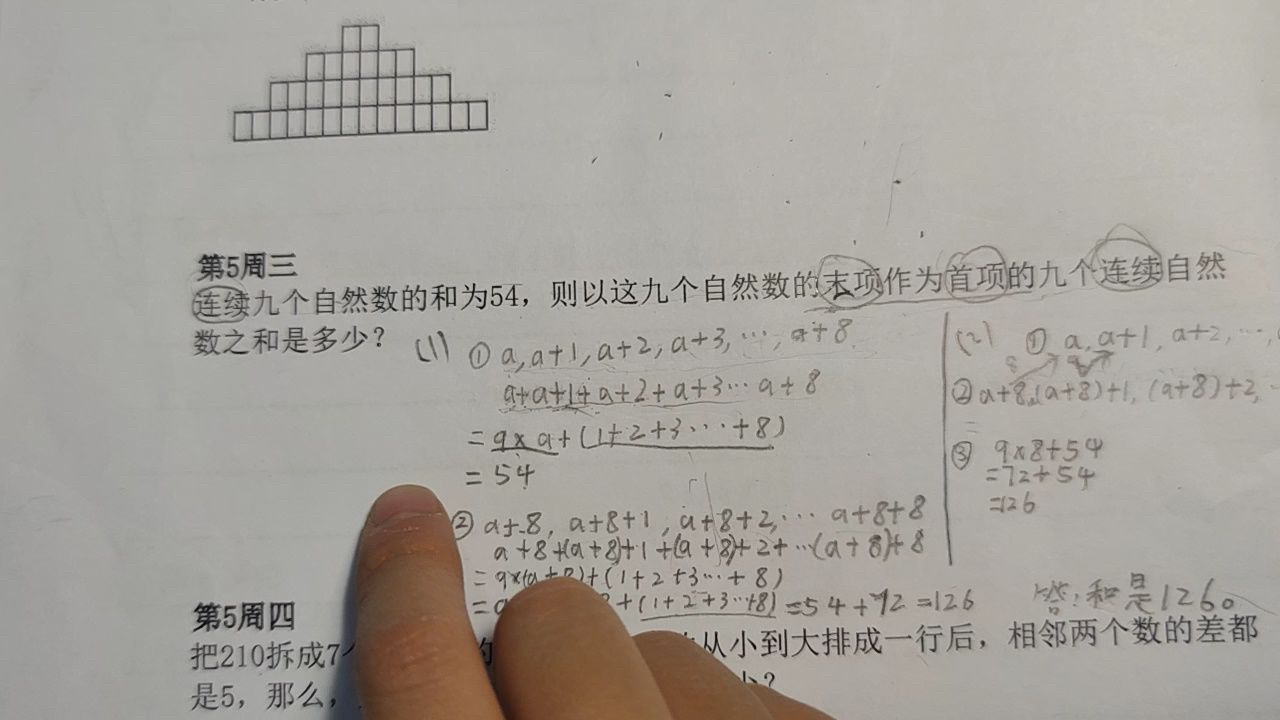 第5周三
连续九个自然数的和为54，则以这九个自然数的末项作为首项的九个连续自然
数之和是多少？
(1) ① a,a+1,a+2,a+3,…,a+8
a+a+1+a+2+a+3…a+8
=9×a+(1+2+3…+8)
=54
② a+8, a+8+1, a+8+2,… a+8+8
a+8+(a+8)+1+(a+8)+2+…(a+8)+8
=9×(a+8)+(1+2+3…+8)
+(1+2+3…+8)=54+72=126
(2) ① a,a+1,a+2,…,
② a+8,(a+8)+1,(a+8)+2,
③ 9×8+54
=72+54
=126
答:和是126。
第5周四
把210拆成7
从小到大排成一行后，相邻两个数的差都
是5，那么，